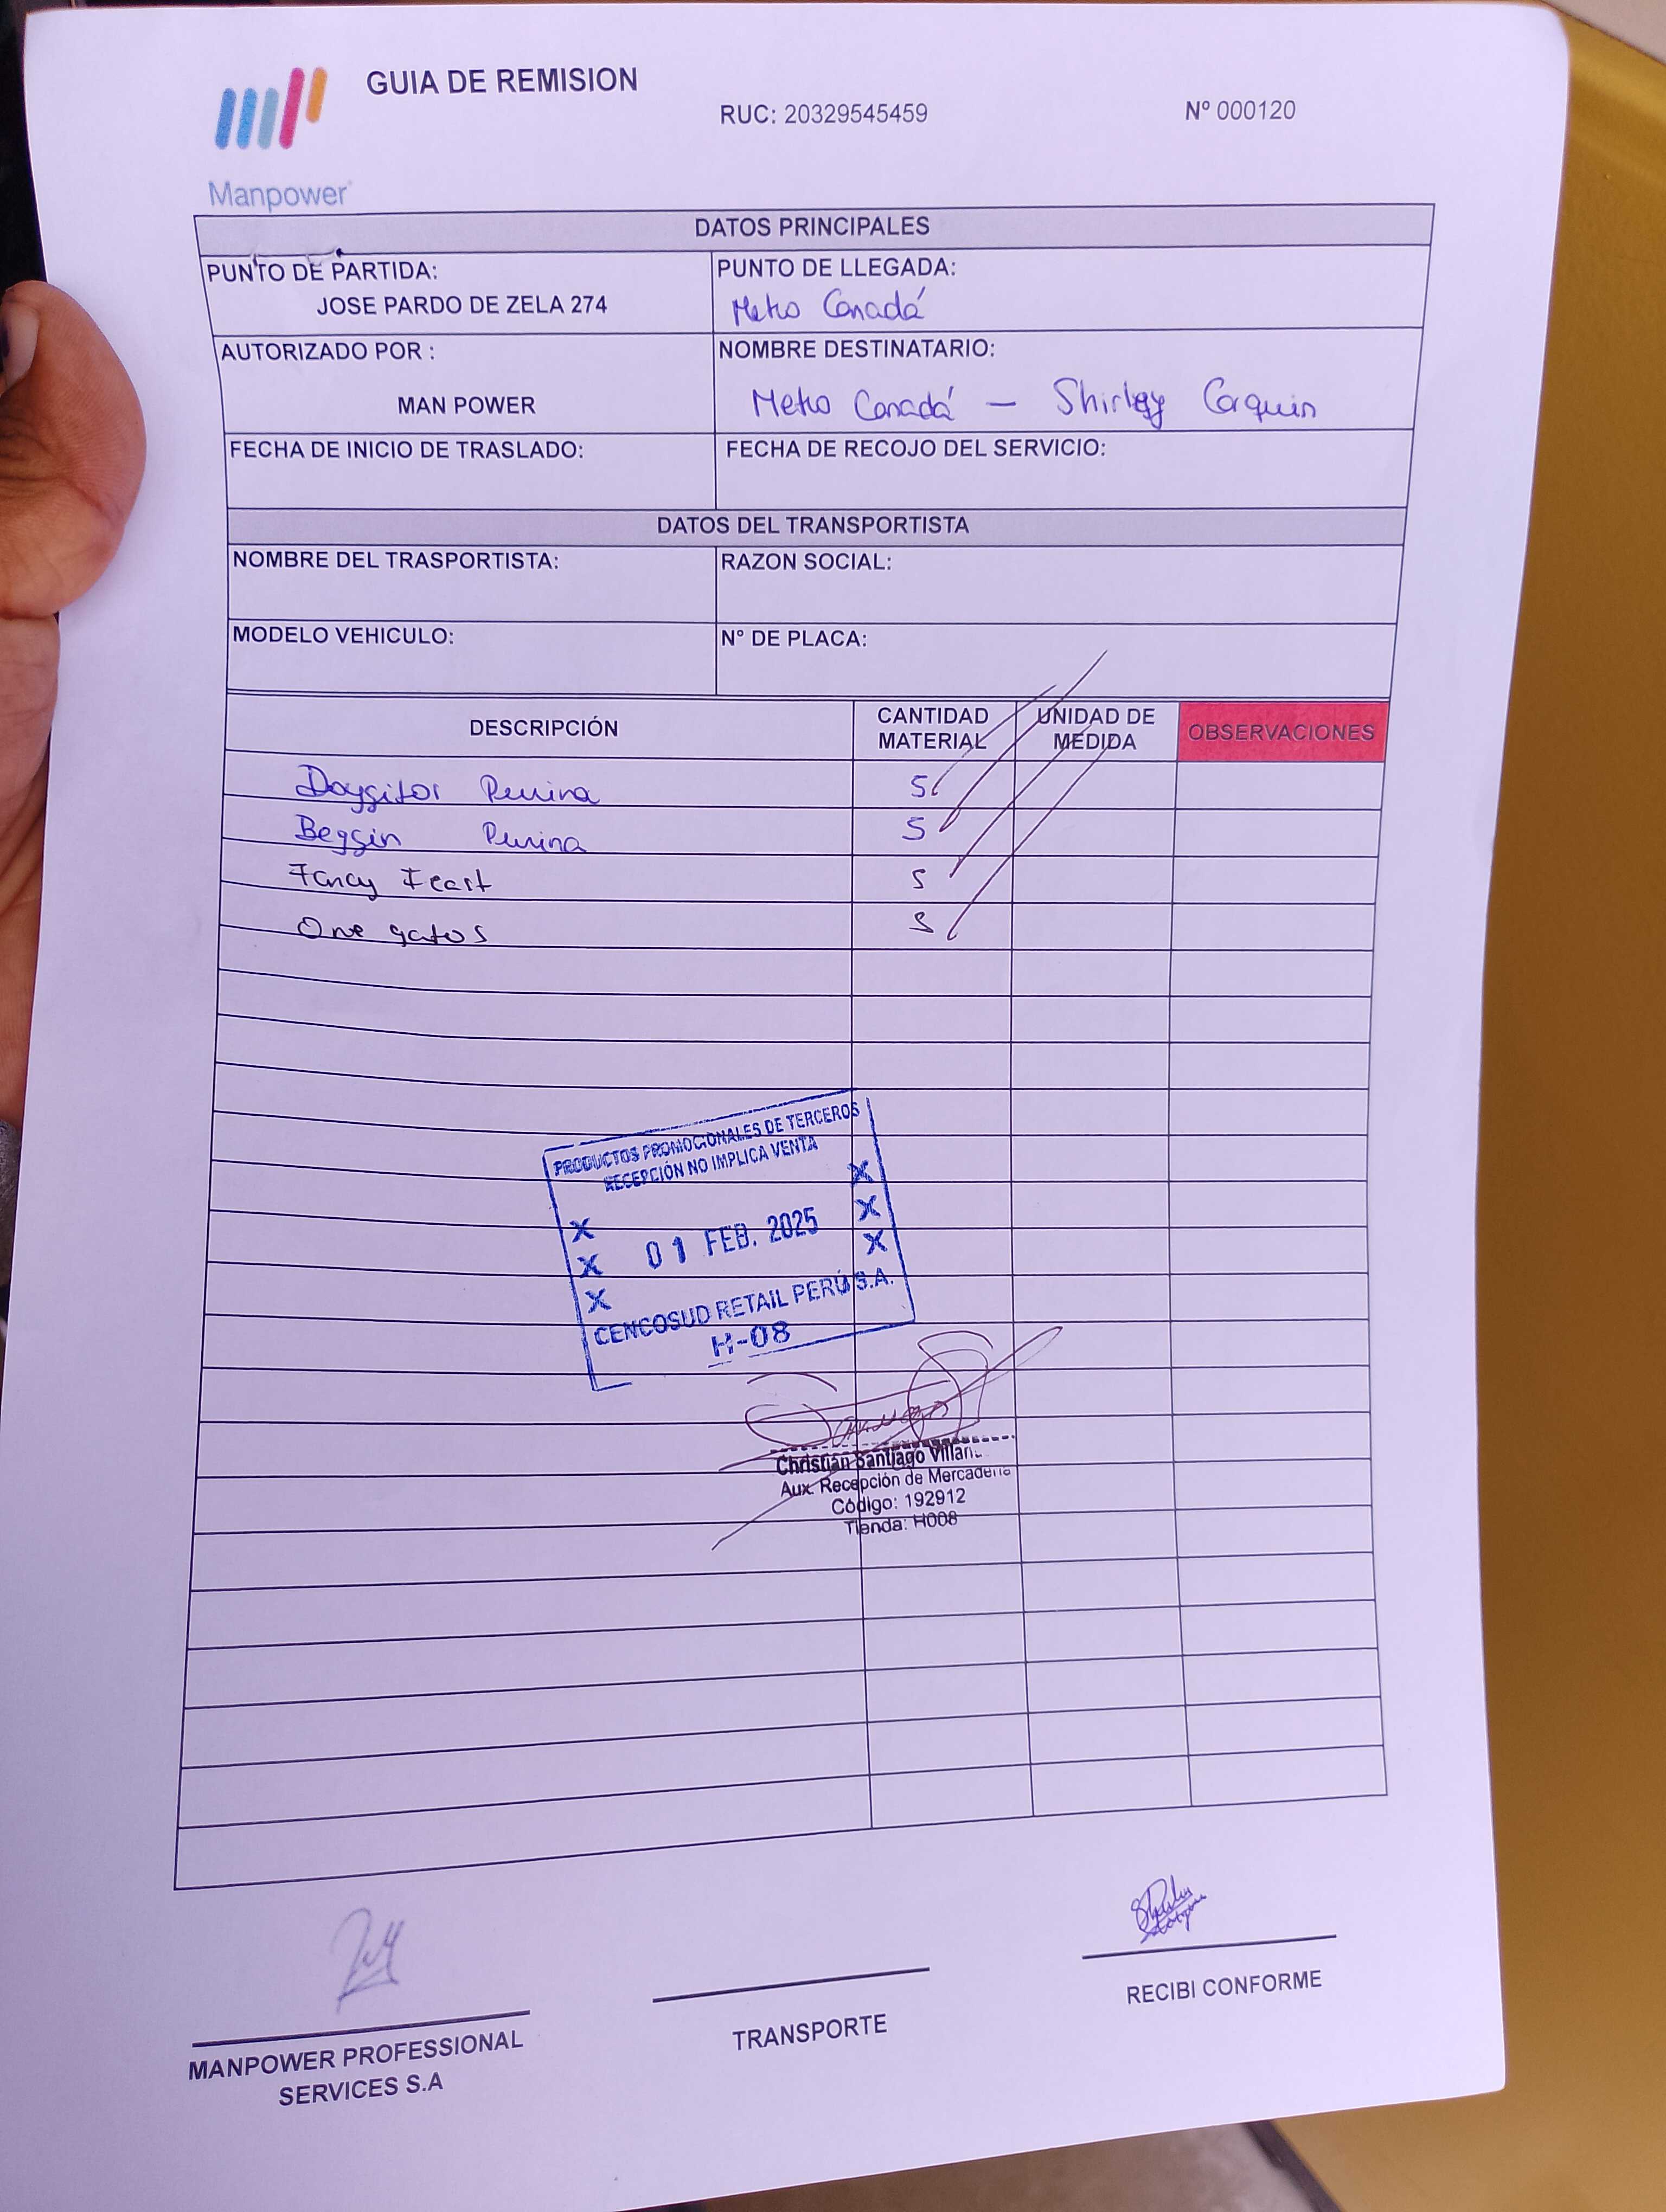 GUIA DE REMISION
RUC: 20329545459
Nº 000120
Manpower
DATOS PRINCIPALES
PUNTO DE PARTIDA:
JOSE PARDO DE ZELA 274
PUNTO DE LLEGADA:
Metro Canadá
AUTORIZADO POR :
MAN POWER
NOMBRE DESTINATARIO:
Metro Canadá — Shirley Carquin
FECHA DE INICIO DE TRASLADO:
FECHA DE RECOJO DEL SERVICIO:
DATOS DEL TRANSPORTISTA
NOMBRE DEL TRASPORTISTA:
RAZON SOCIAL:
MODELO VEHICULO:
N° DE PLACA:
DESCRIPCIÓN
CANTIDAD MATERIAL
UNIDAD DE MEDIDA
OBSERVACIONES
Purina 5
Beggin Purina 5
Fancy Feast 5
One gatos 5
PRODUCTOS PROMOCIONALES DE TERCEROS
RECEPCIÓN NO IMPLICA VENTA
X X X
01 FEB. 2025
X X X
CENCOSUD RETAIL PERÚ S.A.
H-08
Christian Santiago
Aux. Recepción de
Código: 192912
Tienda: H008
MANPOWER PROFESSIONAL
SERVICES S.A
TRANSPORTE
RECIBI CONFORME